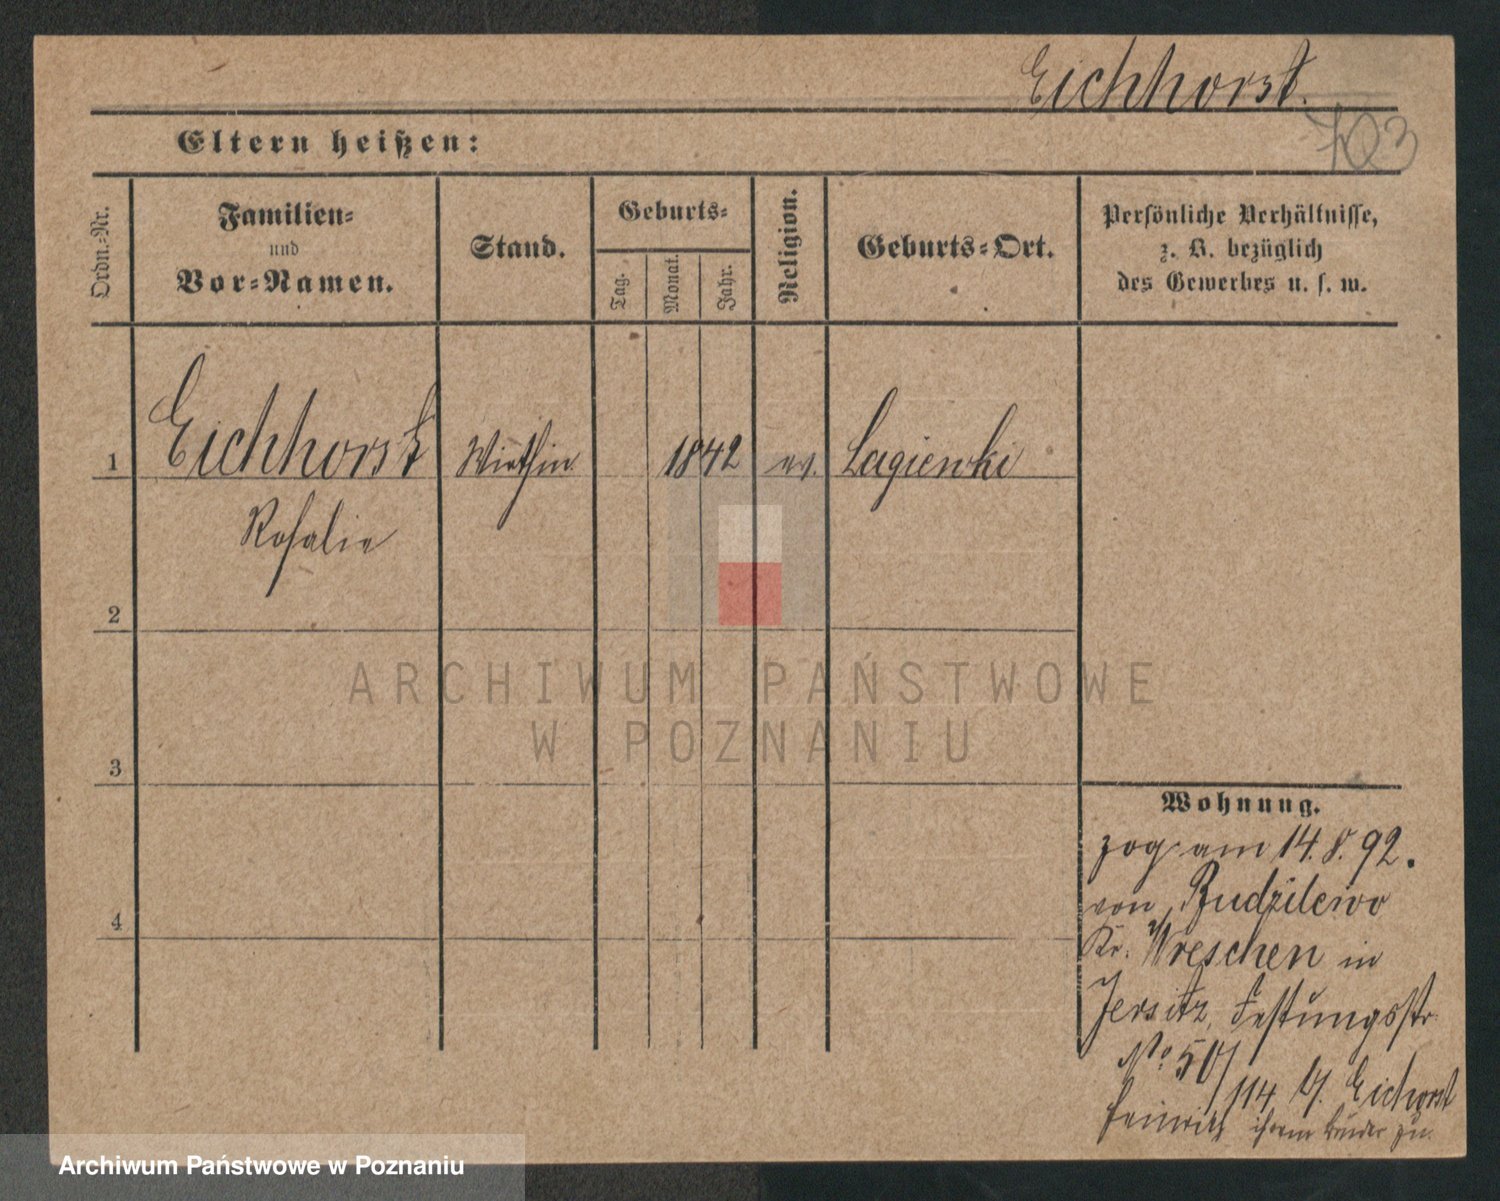 Eichhorst.
Eltern heißen:
703
Ordn.=Nr.
Familien=
und
Vor=Namen.
Stand.
Geburts=
Tag.
Monat.
Jahr.
Religion.
Geburts=Ort.
Persönliche Verhältnisse,
z. B. bezüglich
des Gewerbes u. s. w.
1 Eichhorst Wirthin 1842 ev. Lagiewki
Rosalie
2
3
4
Wohnung.
zog am 14. 8. 92.
von Budzilewo
Kr. Wreschen in
Jersitz, Festungsstr.
No 50/114 b/. Eichorst
Heinrich ihrem Bruder zu.
ARCHIWUM PAŃSTWOWE
W POZNANIU
Archiwum Państwowe w Poznaniu